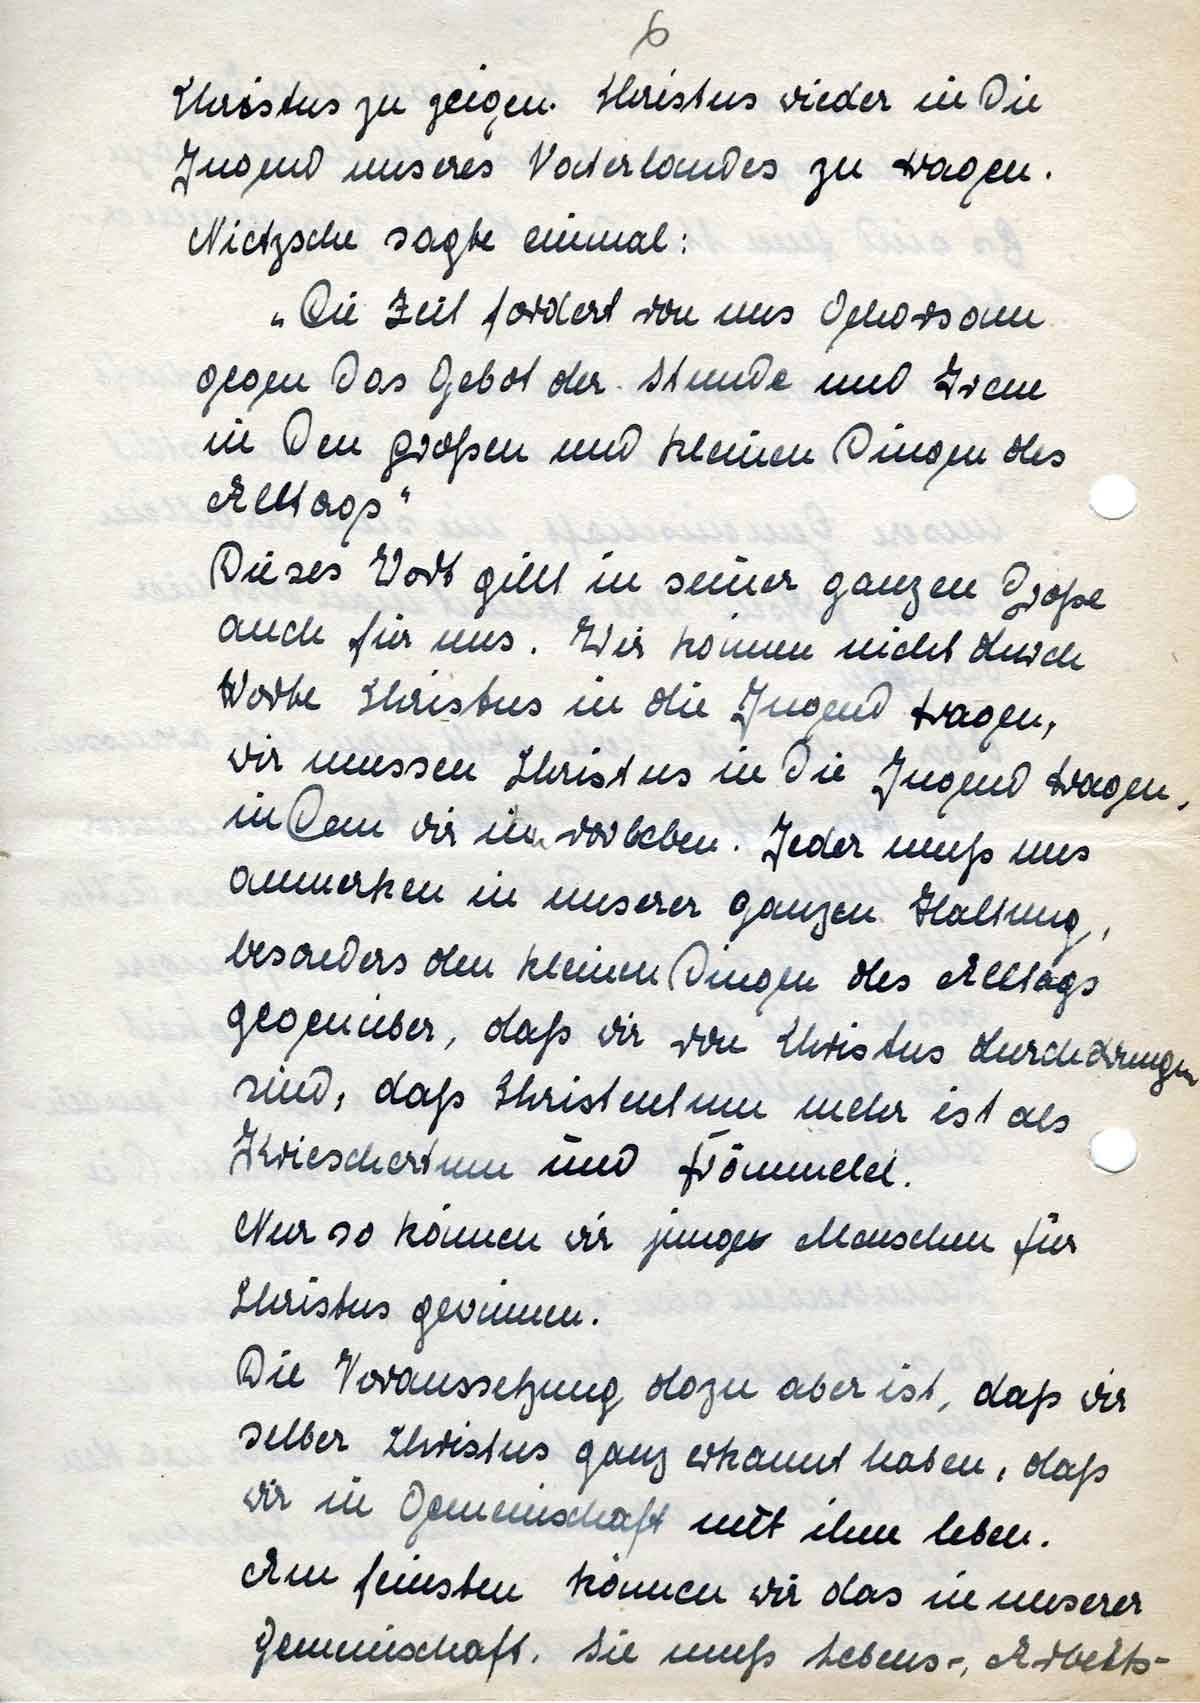 6
Christus zu zeigen. Christus wieder in die
Jugend unseres Vaterlandes zu tragen.
Nietzsche sagte einmal:
„Die Zeit fordert von uns Gehorsam
gegen das Gebot der Stunde und Treue
in den großen und kleinen Dingen des
Alltags"
Dieses Wort gillt in seiner ganzen Größe
auch für uns. Wir können nicht durch
Worte Christus in die Jugend tragen,
wir mussen Christus in die Jugend tragen,
in dem wir ihn vorleben. Jeder muß uns
anmerken in unserer ganzen Haltung,
besonders den kleinen Dingen des Alltags
gegenüber, daß wir von Christus durchdrungen
sind, daß Christentum mehr ist als
Kriechertum und Frömmelei.
Nur so können wir junge Menschen für
Christus gewinnen.
Die Voraussetzung dazu aber ist, daß wir
selber Christus ganz erkannt haben, daß
wir in Gemeinschaft mit ihm leben.
Am feinsten können wir das in unserer
Gemeinschaft. Sie muß Lebens-, Arbeits-